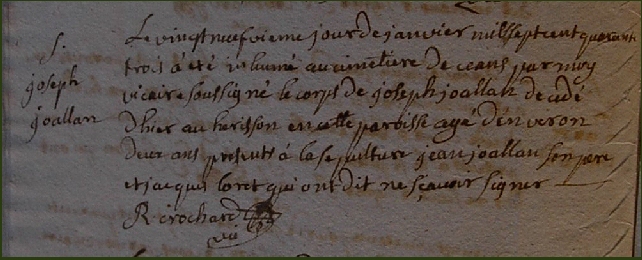 S.
joseph
joallan
Le vingt neufvieme jour de janvier mil sept cent quarante
trois a eté inhumé au cimetiere de ceans par moy
vicaire soussigné le corps de joseph joallan decedé
d'hier au herisson en cette paroisse agé d'environ
deux ans presents á la sepulture jean joallan son pere
et jacques loret qui ont dit ne sçavoir signer
R. crochard
vic